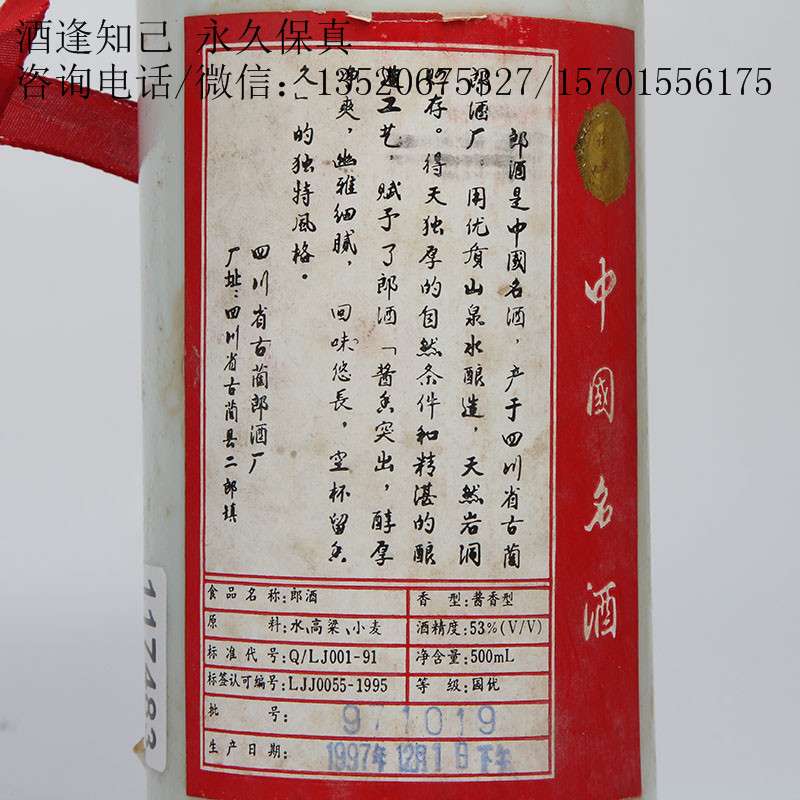 酒逢知己 永久保真
咨询电话/微信：13520675327/15701556175
郎酒是中國名酒，产于四川省古蔺
郎酒厂，用优质山泉水酿造，天然岩洞
贮存。得天独厚的自然条件和精湛的酿
造工艺，赋予了郎酒「酱香突出，醇厚
净爽，幽雅细腻，回味悠長，空杯留香
久」的独特风格。
四川省古蔺郎酒厂
厂址：四川省古蔺县二郎镇
中國名酒
食品名称：郎酒
香型：酱香型
原料：水、高粱、小麦
酒精度：53%(V/V)
标准代号：Q/LJ001-91
净含量：500mL
标签认可编号：LJJ0055-1995
等级：国优
批号：971019
生产日期：1997年12月1日下午
117483